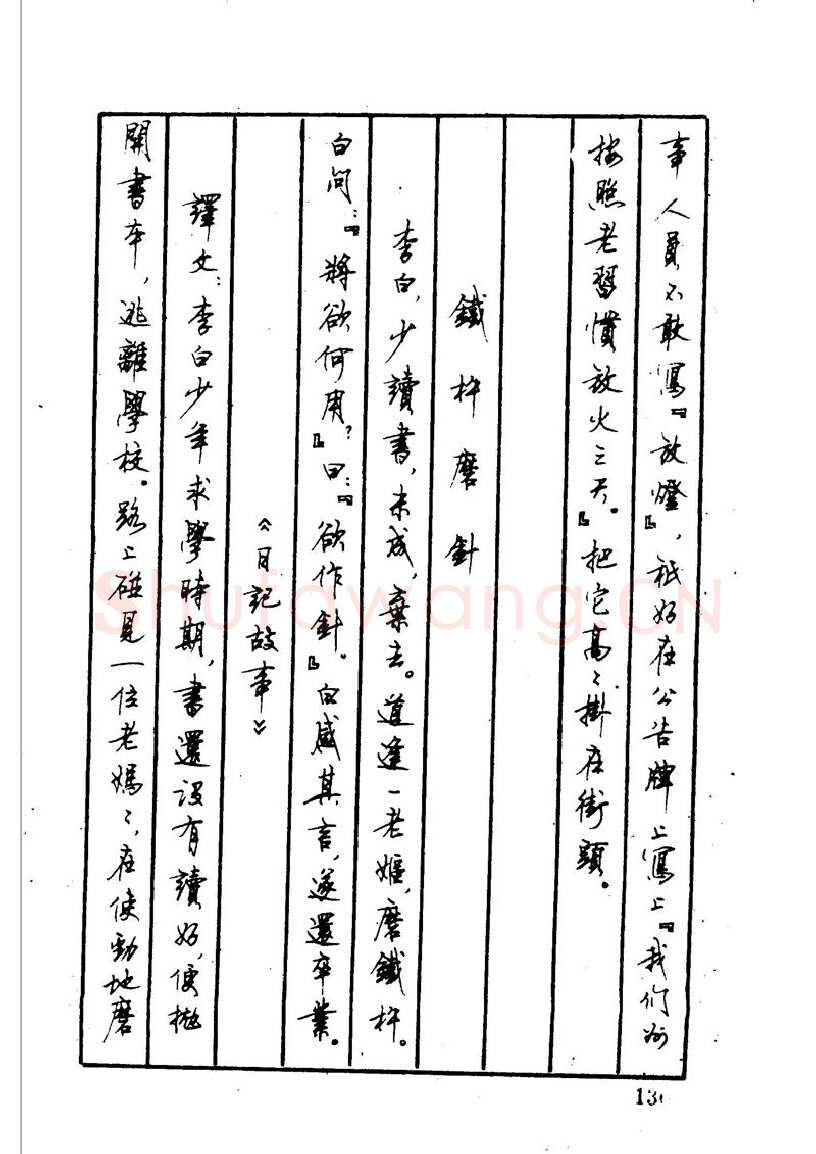 事人員不敢寫『放燈』，祇好在公告牌上寫上『我们州
按照老習慣放火三天。』把它高々掛在街頭。
鐵杵磨針
李白，少讀書，未成，棄去。道逢一老嫗，磨鐵杵。
白问：『將欲何用？』曰：『欲作針。』白感其言，遂還卒業。
《日記故事》
譯文：李白少年求學時期，書還没有讀好，便抛
開書本，逃離學校。路上碰見一位老媽々，在使勁地磨
13
Shufawang.CN